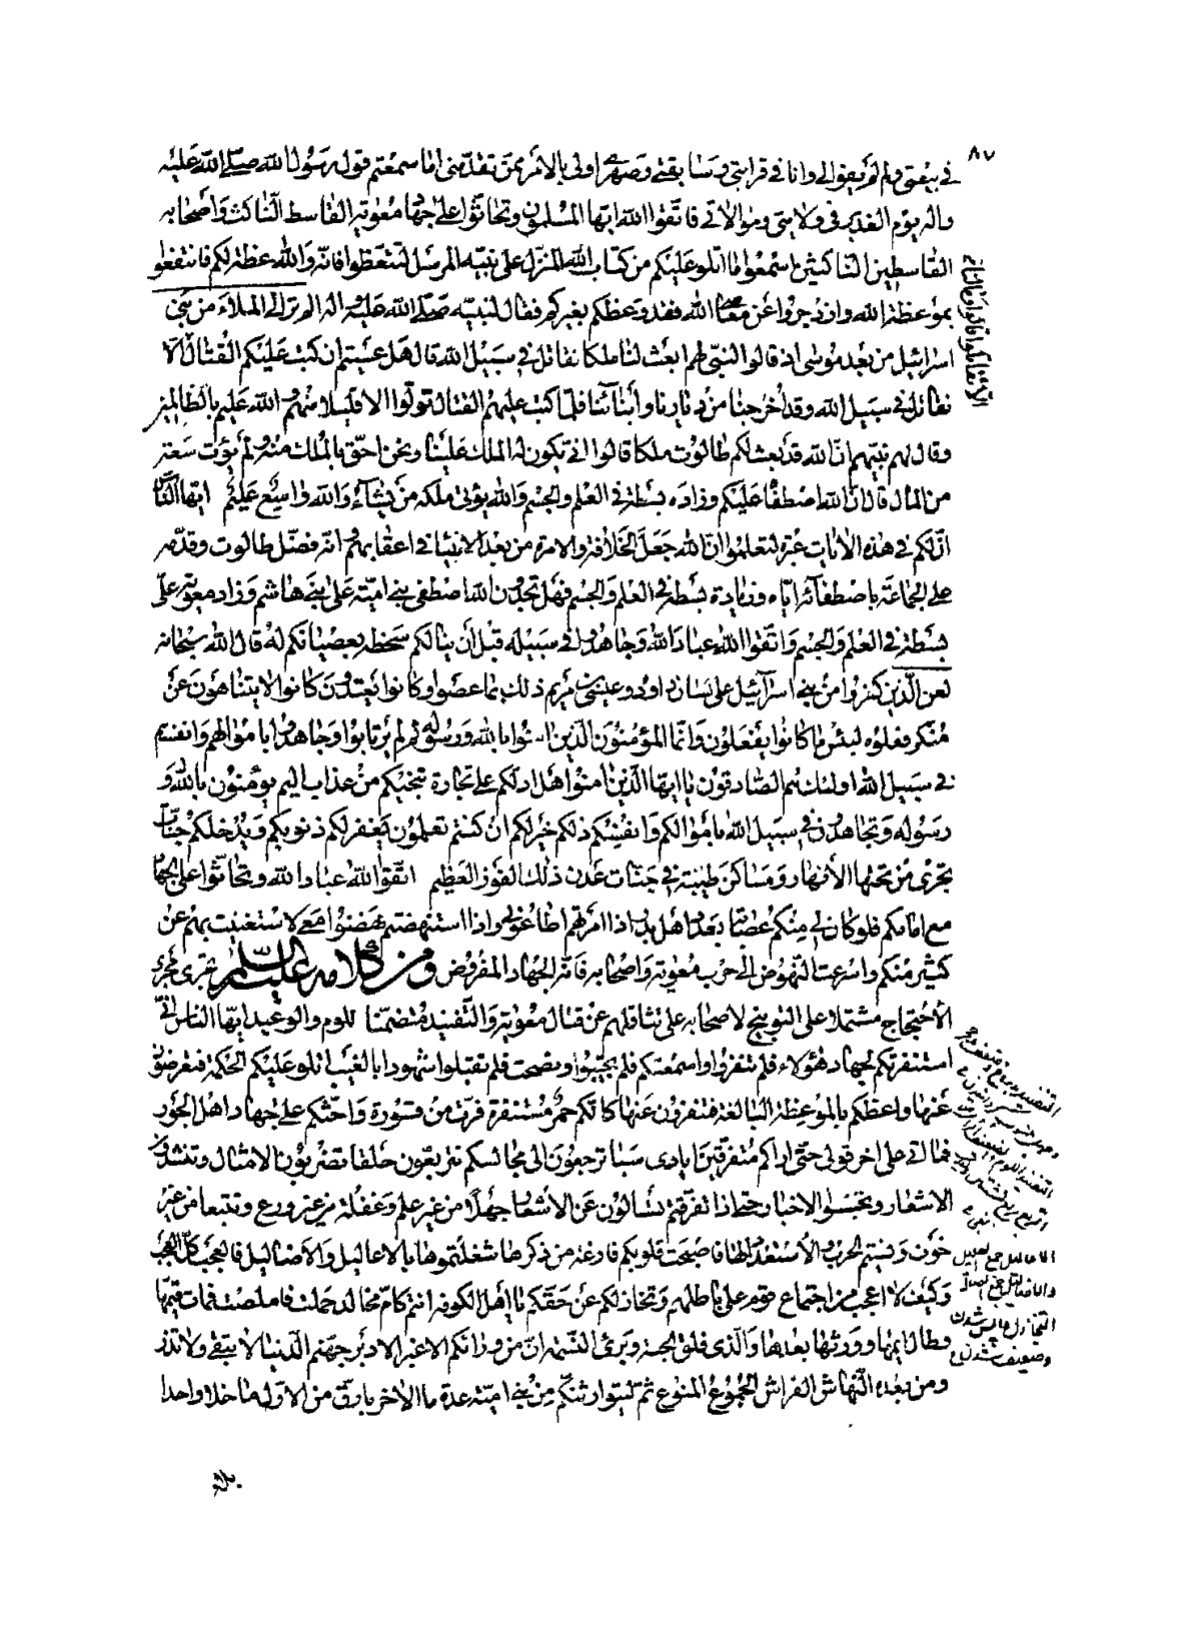 ٨٧
في بيعتي ولم لم يفوا لي وانا في قرابتي وسابقتي وصهري اولى بالامر ممن تقدمني اما سمعتم قول رسول الله صلى الله عليه
واله يوم الغدير في ولايتي وموالاتي فاتقوا الله ايها المسلمون وتحاثوا على جهاد معوية القاسط الناكث واصحابه
القاسطين الناكثين اسمعوا ما اتلو عليكم من كتاب الله المنزل على نبيه المرسل لتتعظوا فانه والله عظة لكم فانتفعوا
بموعظة الله وازدجروا عن معاصي الله فقد وعظكم بغيركم فقال لنبيه صلى الله عليه واله الم تر الى الملاء من بني
اسرائيل من بعد موسى اذ قالوا لنبي لهم ابعث لنا ملكا نقاتل في سبيل الله قال هل عسيتم ان كتب عليكم القتال الا
نقاتل في سبيل الله وقد اخرجنا من ديارنا وأبنائنا فلما كتب عليهم القتال تولوا الا قليلا منهم والله عليم بالظالمين
وقال لهم نبيهم ان الله قد بعث لكم طالوت ملكا قالوا انى يكون له الملك علينا ونحن احق بالملك منه ولم يؤت سعة
من المال قال ان الله اصطفاه عليكم وزاده بسطة في العلم والجسم والله يؤتي ملكه من يشاء والله واسع عليم ايها الناس
ان لكم في هذه الايات عبرة لتعلموا ان الله جعل الخلافة والامرة من بعد الانبياء في اعقابهم وانه فضل طالوت وقدمه
على الجماعة باصطفائه اياه وزيادة بسطة في العلم والجسم فهل تجدون الله اصطفى بني امية على بني هاشم وزاد معوية علي
بسطة في العلم والجسم واتقوا الله عباد الله وجاهدوا في سبيله قبل أن ينالكم سخطه بعصيانكم له قال الله سبحانه
لعن الذين كفروا من بني اسرآئيل على لسان داود وعيسى بن مريم ذلك بما عصوا وكانوا يعتدون كانوا لا يتناهون عن
منكر فعلوه لبئس ما كانوا يفعلون وانما المؤمنون الذين امنوا بالله ورسوله ثم لم يرتابوا وجاهدوا باموالهم وانفسهم
في سبيل الله اولئك هم الصادقون يا ايها الذين امنوا هل ادلكم على تجارة تنجيكم من عذاب اليم يؤمنون بالله و
رسوله وتجاهدون في سبيل الله باموالكم وانفسكم ذلكم خير لكم ان كنتم تعلمون يغفر لكم ذنوبكم ويدخلكم جنات
تجري من تحتها الأنهار ومساكن طيبة في جنات عدن ذلك الفوز العظيم اتقوا الله عباد الله وتحاثوا على الجهاد
مع امامكم فلو كان لي منكم عصابة بعدد اهل بدر اذا امرتهم اطاعوني واذا استنهضتهم نهضوا معي لاستغنيت بهم عن
كثير منكم واسرعت النهوض الى حرب معوية واصحابه فانه الجهاد المفروض ومن كلامه عليه السلم يجري مجرى
الأحتجاج مشتملا على التوبيخ لاصحابه على تثاقلهم عن قتال معوية والتفنيد متضمنا للوم والوعيد ايها الناس اني
استنفرتكم لجهاد هؤلاء فلم تنفروا واسمعتكم فلم تجيبوا ونصحت فلم تقبلوا شهودا بالغيب اتلو عليكم الحكمة فتعرضون
عنها واعظكم بالموعظة البالغة فتنفرون عنها كانكم حمر مستنفرة فرت من قسورة واحثكم على جهاد اهل الجور
فما اتي على اخر قولي حتى اراكم متفرقين ايادي سبا ترجعون الى مجالسكم تتربعون حلقا تضربون الامثال وتنشدون
الاشعار وتجسسوا الاخبار حتى اذا تفرقتم تسالون عن الأشعار جهلا من غير علم وغفلة من غير ورع وتتبعا من غير
خوف ونسيتم الحرب والأستعداد لها فاصبحت قلوبكم فارغة من ذكرها شغلتموها بالاعاليل والأضاليل فالعجب كل العجب
وكيف لا اعجب من اجتماع قوم على باطلهم وتخاذلكم عن حقكم يا اهل الكوفة انتم كام مخالد حملت فاملصت فمات قيمها
وطال ايمها وورثها بعدها والذي فلق الحبة وبرئ النسمة ان من ورائكم الاعور الادبر جهنم الدنيا لا يبقي ولا تذر
ومن بعده النهاش الفراش الجموع المنوع ثم ليتوارثنكم من بني امية عدة ما الاخر بارق من الاول ما خلا واحدا